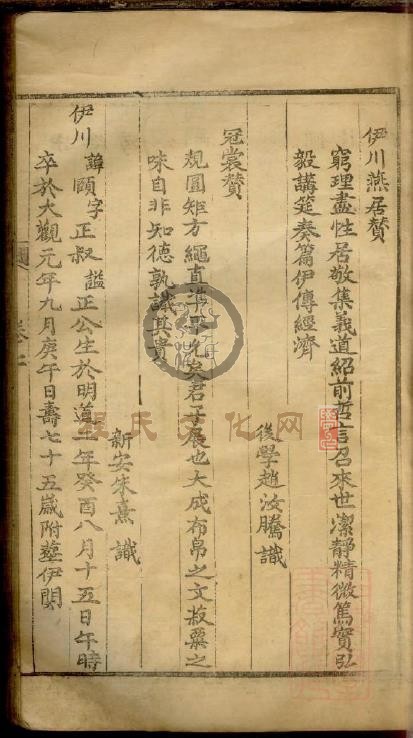 伊川燕居贊
窮理盡性居敬集義道紹前哲言召來世潔靜精微篤實弘
毅講筵奏篇伊傳經濟
後學趙汝騰識
冠裳贊
規圓矩方繩直準平允矣君子展也大成布帛之文菽粟之
味自非知德孰識其貴
新安朱熹識
伊川諱頤字正叔謚正公生於明道二年癸酉八月十五日午時
卒於大觀元年九月庚午日壽七十五歲附塟伊闕
程氏文化网